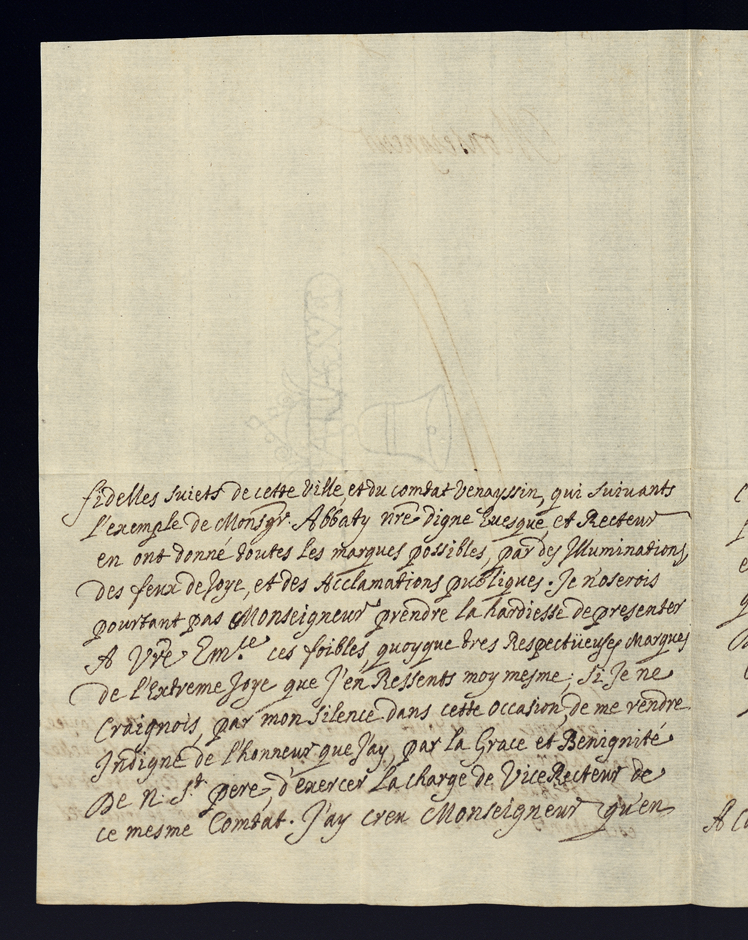 fidelles sujets de cette Ville, et du comtat Venayssin, qui suivants
l'exemple de Monsgr. Abbaty nre digne Euesque, et Recteur
en ont donné toutes les marques possibles, par des Illuminations,
des feux de Joye, et des Acclamations publiques. Je n'oserois
pourtant pas Monseigneur prendre la hardiesse de presenter
A Vre Em.ce ces foibles, quoyque tres Respectüeuses Marques
de l'Extreme Joye que J'en Ressents moy mesme; si Je ne
Craignois, par mon silence dans cette occasion, de me rendre
Indigne de l'honneur que J'ay, par la Grace et Benignité
De N. St. pere, d'exercer la charge de Vice Recteur de
ce mesme Comtat. J'ay creu Monseigneur qu'en